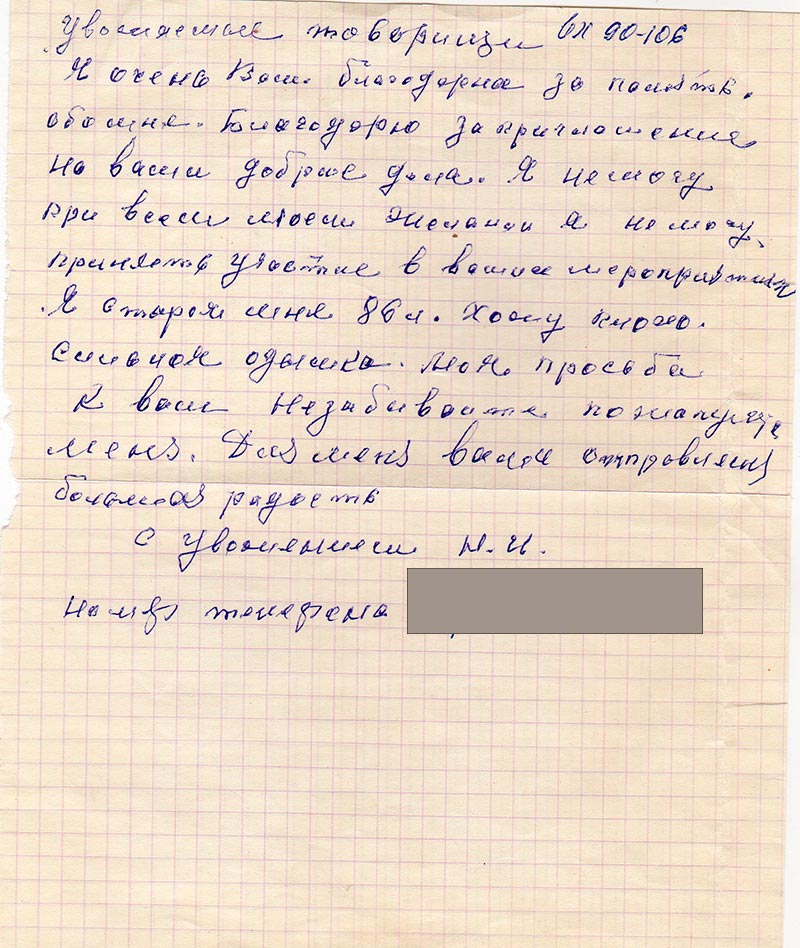 Уважаемые товарищи вх 90-106
Я очень Вам благодарна за память.
обо мне. Благодарю за приглашение
на ваши добрые дела. Я не могу
при всем моем желании я не могу
принять участие в ваших мероприятиях
. Я старая мне 86 л. Хожу плохо.
Сильная одышка. Моя просьба
к вам Незабывайте пожалуйста
меня. Для меня ваши отправления
большая радость
С уважением Н. И.
Номер телефона